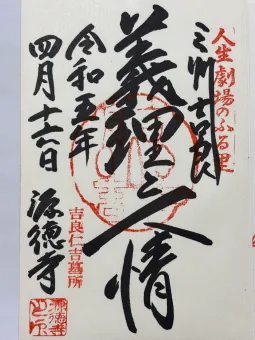 人生劇場のふる里
三州吉良
義理と人情
吉良仁吉墓所
令和五年
四月十六日
源徳寺